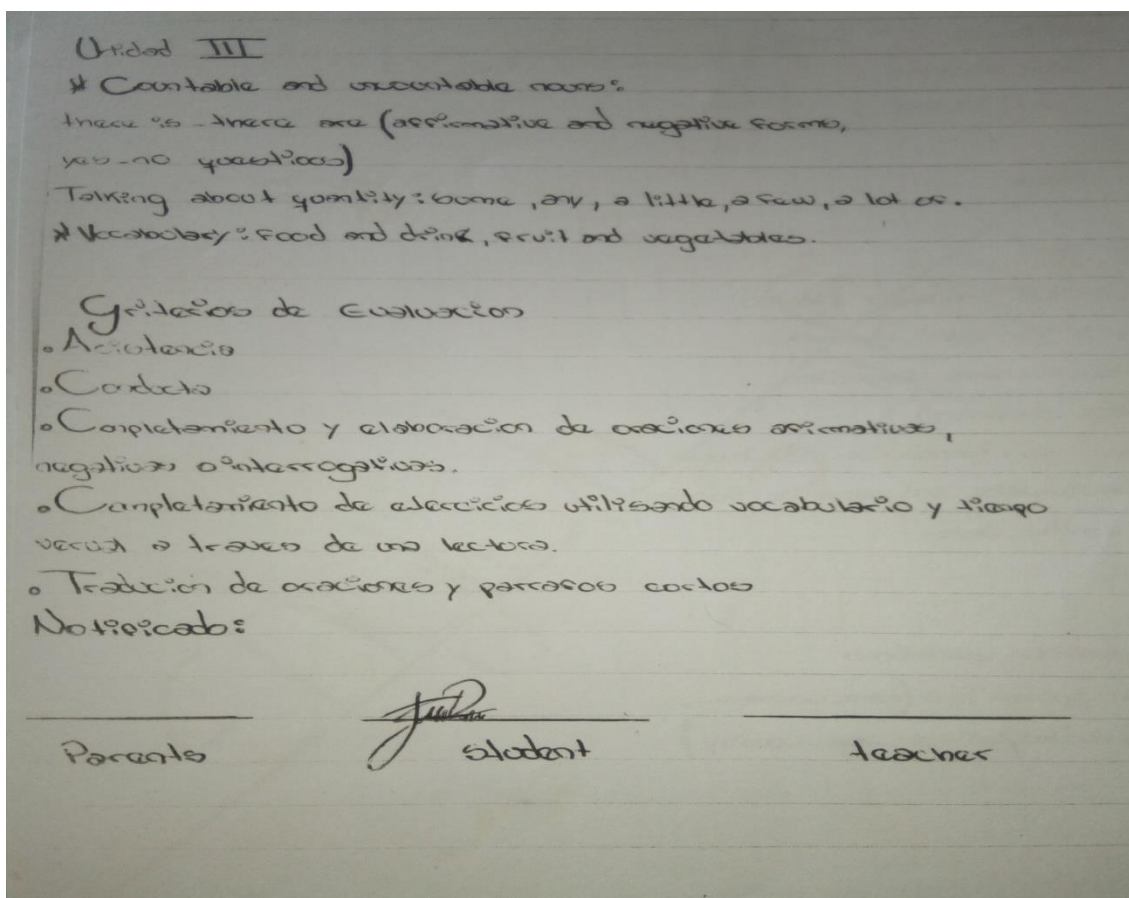 Unidad III
* Countable and uncountable nouns:
there is - there are (affirmative and negative forms,
yes-no questions)
Talking about quantity: some, any, a little, a few, a lot of.
* Vocabulary: Food and drink, fruit and vegetables.
Criterios de Evaluacion
• Asistencia
• Conducta
• Completamiento y elaboracion de oraciones afirmativas,
negativas o interrogativas.
• Completamiento de ejercicios utilisando vocabulario y tiempo
verval a traves de una lectura.
• Traducion de oraciones y parrafos cortos
Notificado:
Parents student teacher